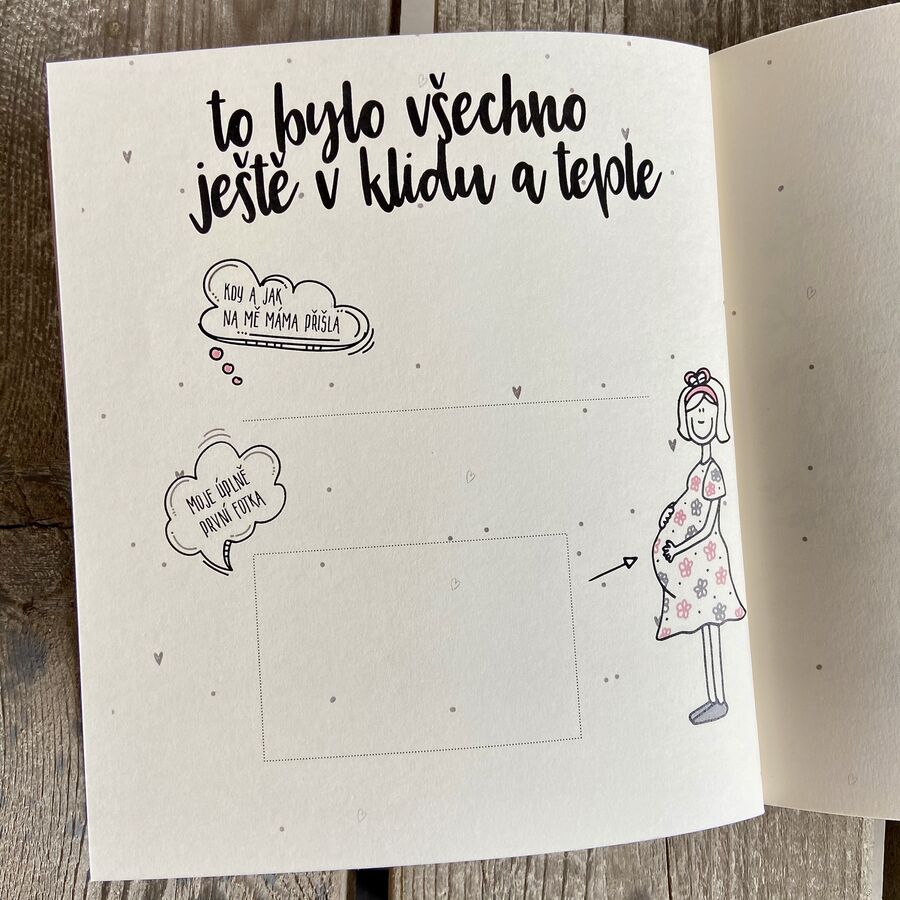 to bylo všechno
ještě v klidu a teple
KDY A JAK
NA MĚ MÁMA PŘIŠLA
MOJE ÚPLNĚ
PRVNÍ FOTKA